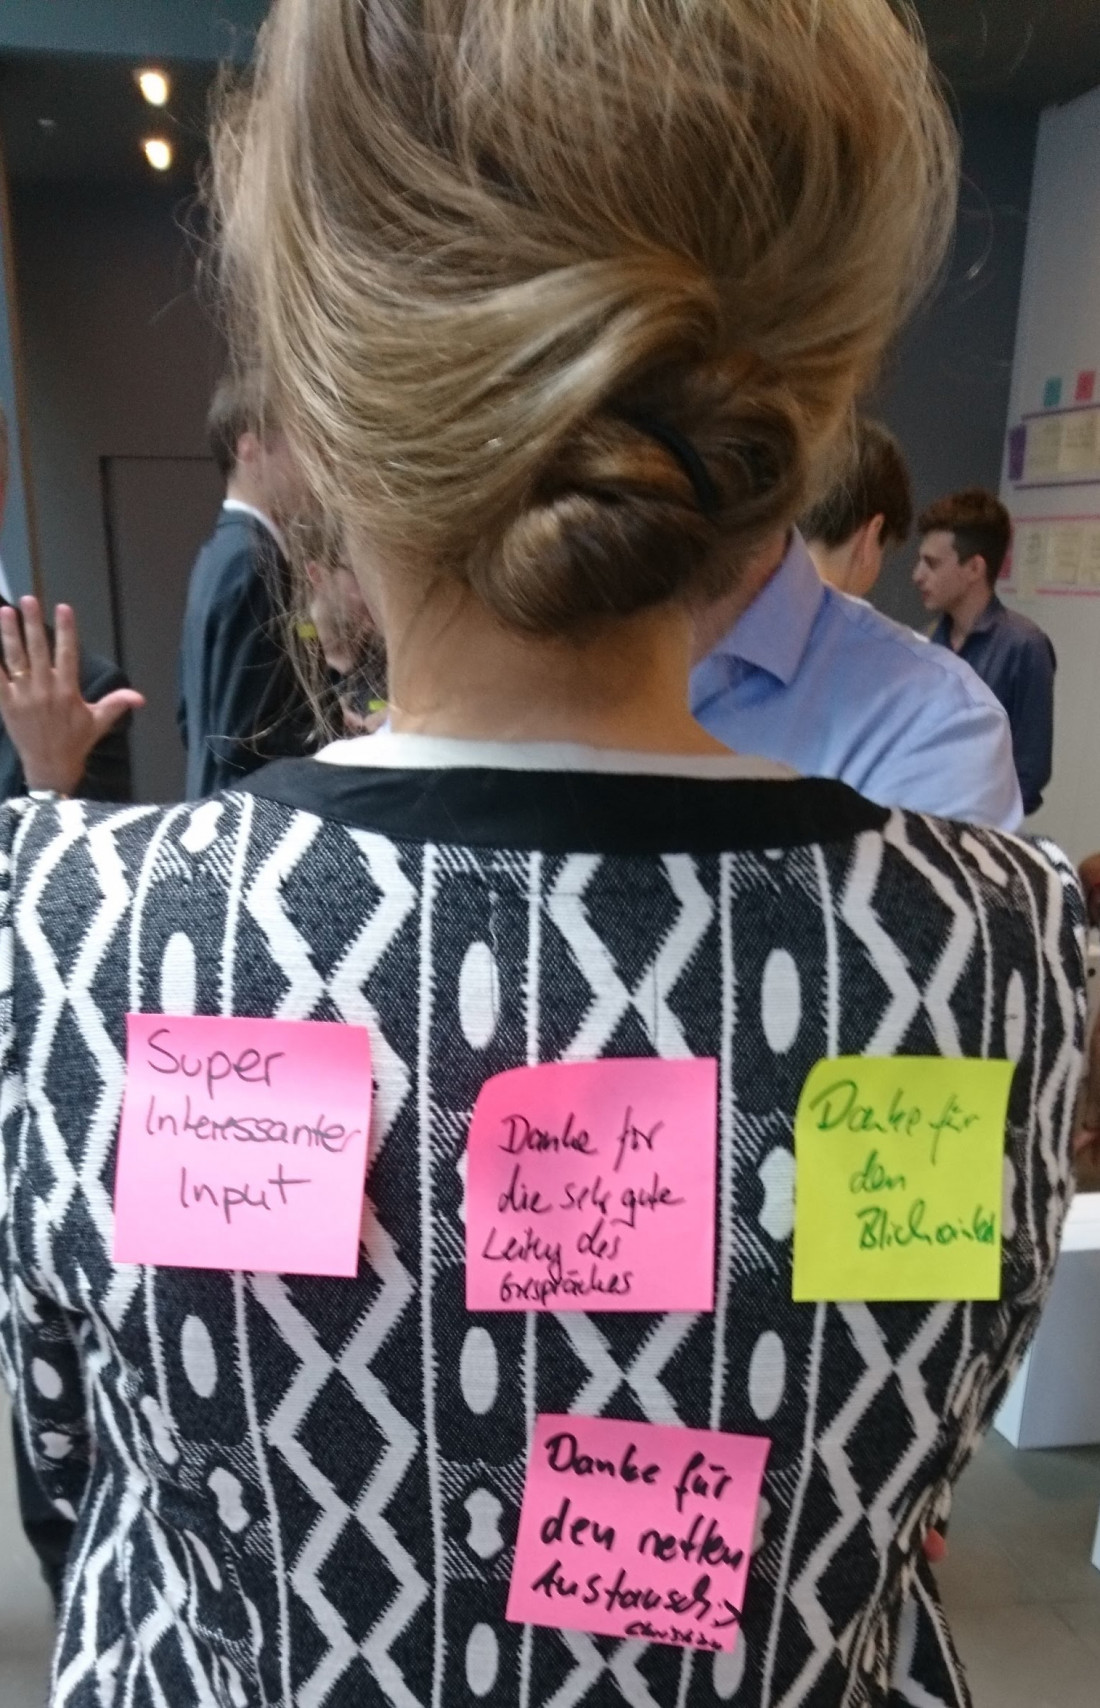 Super
Interessanter
Input
Danke für
die sehr gute
Leitung des
Gespräches
Danke für
den
Blickwinkel
Danke für
den netten
Austausch :)